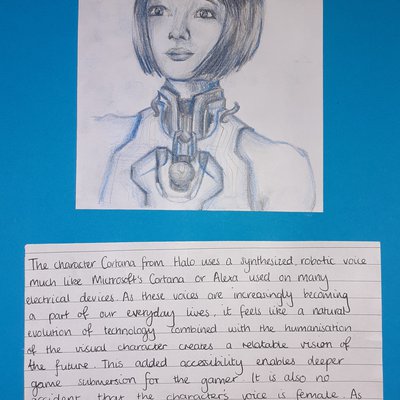 The character Cortana from Halo uses a synthesized, robotic voice
much like Microsoft's Cortana or Alexa used on many
electrical devices. As these voices are increasingly becoming
a part of our everyday lives, it feels like a natural
evolution of technology combined with the humanisation
of the visual character creates a relatable vision of
the future. This added accessibility enables deeper
game submersion for the gamer. It is also no
accident that the character's voice is female. As